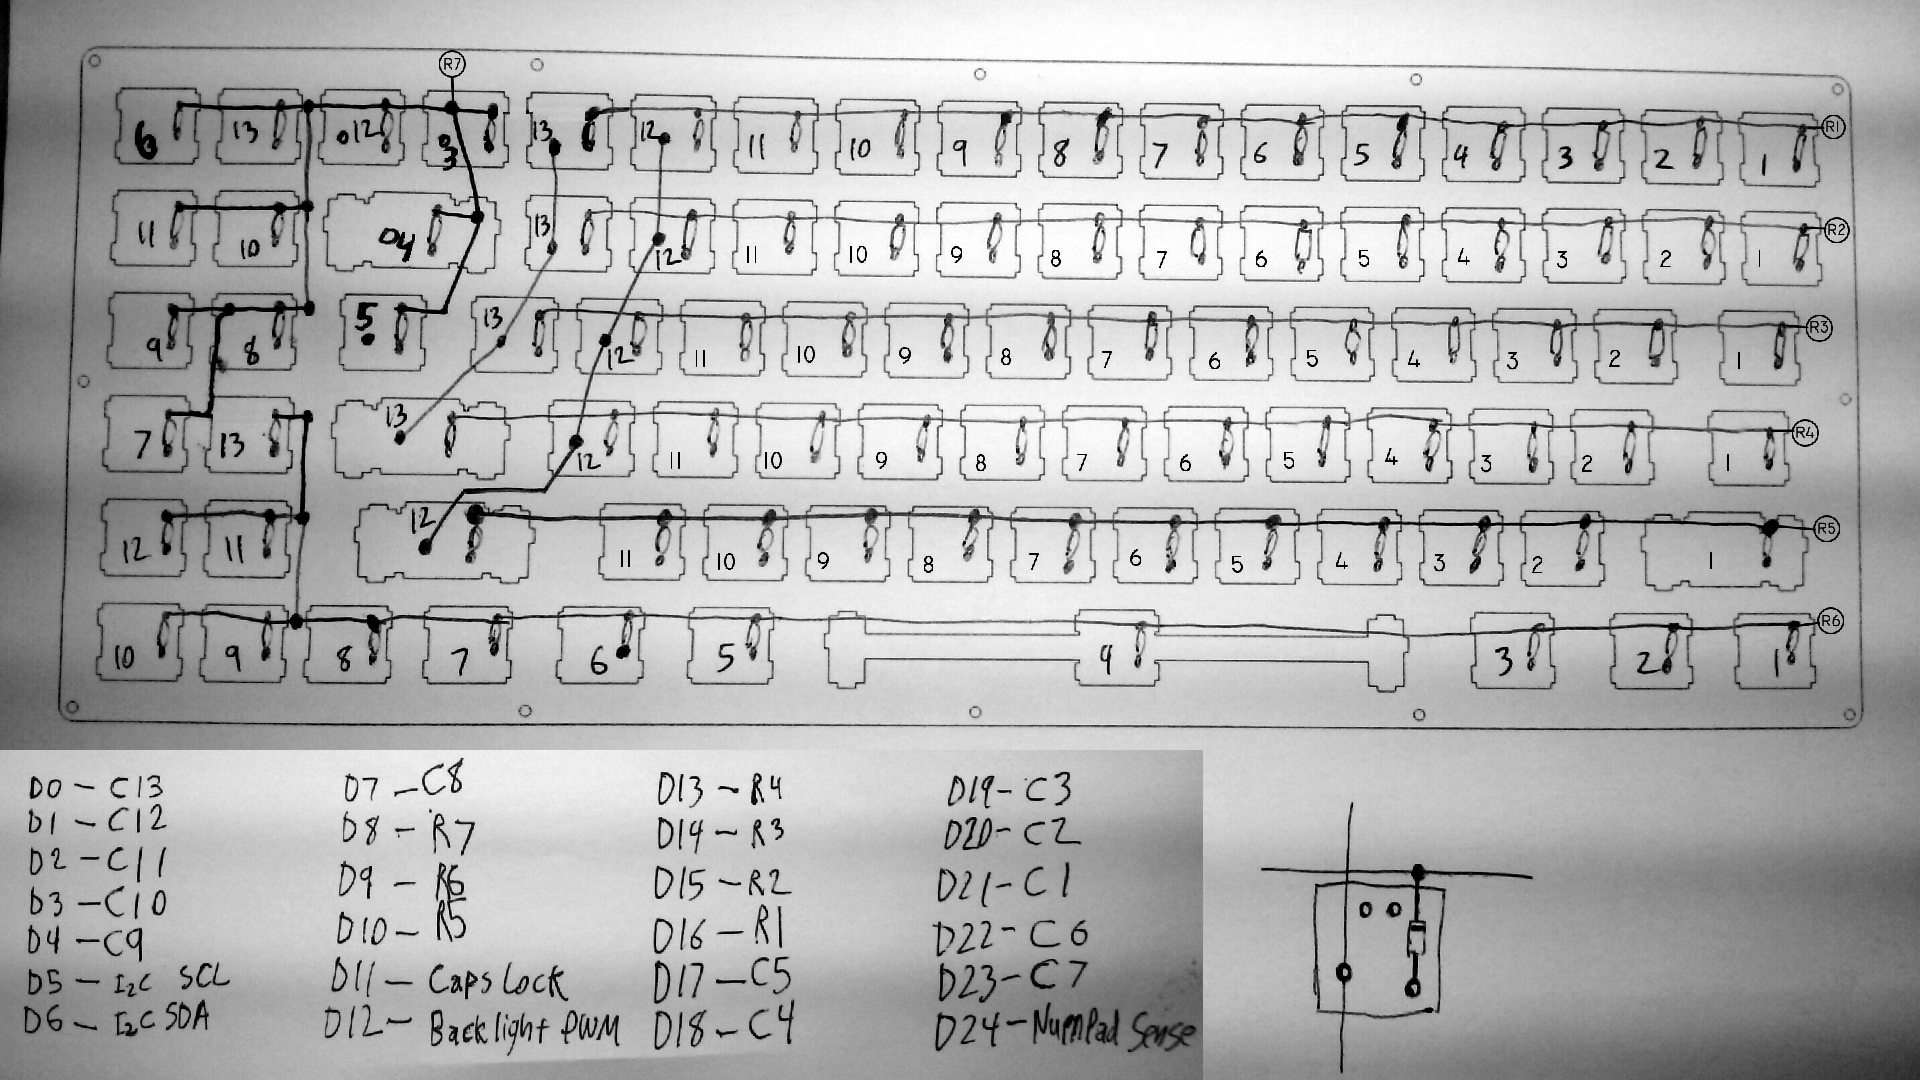 R7
6 13 12 3 13 12 11 10 9 8 7 6 5 4 3 2 1 R1
11 10 04 13 12 11 10 9 8 7 6 5 4 3 2 1 R2
9 8 5 13 12 11 10 9 8 7 6 5 4 3 2 1 R3
7 13 13 12 11 10 9 8 7 6 5 4 3 2 1 R4
12 11 12 11 10 9 8 7 6 5 4 3 2 1 R5
10 9 8 7 6 5 4 3 2 1 R6
D0 - C13
D1 - C12
D2 - C11
D3 - C10
D4 - C9
D5 - I2C SCL
D6 - I2C SDA
D7 - C8
D8 - R7
D9 - R6
D10 - R5
D11 - Caps Lock
D12 - Backlight PWM
D13 - R4
D14 - R3
D15 - R2
D16 - R1
D17 - C5
D18 - C4
D19 - C3
D20 - C2
D21 - C1
D22 - C6
D23 - C7
D24 - NumPad Sense